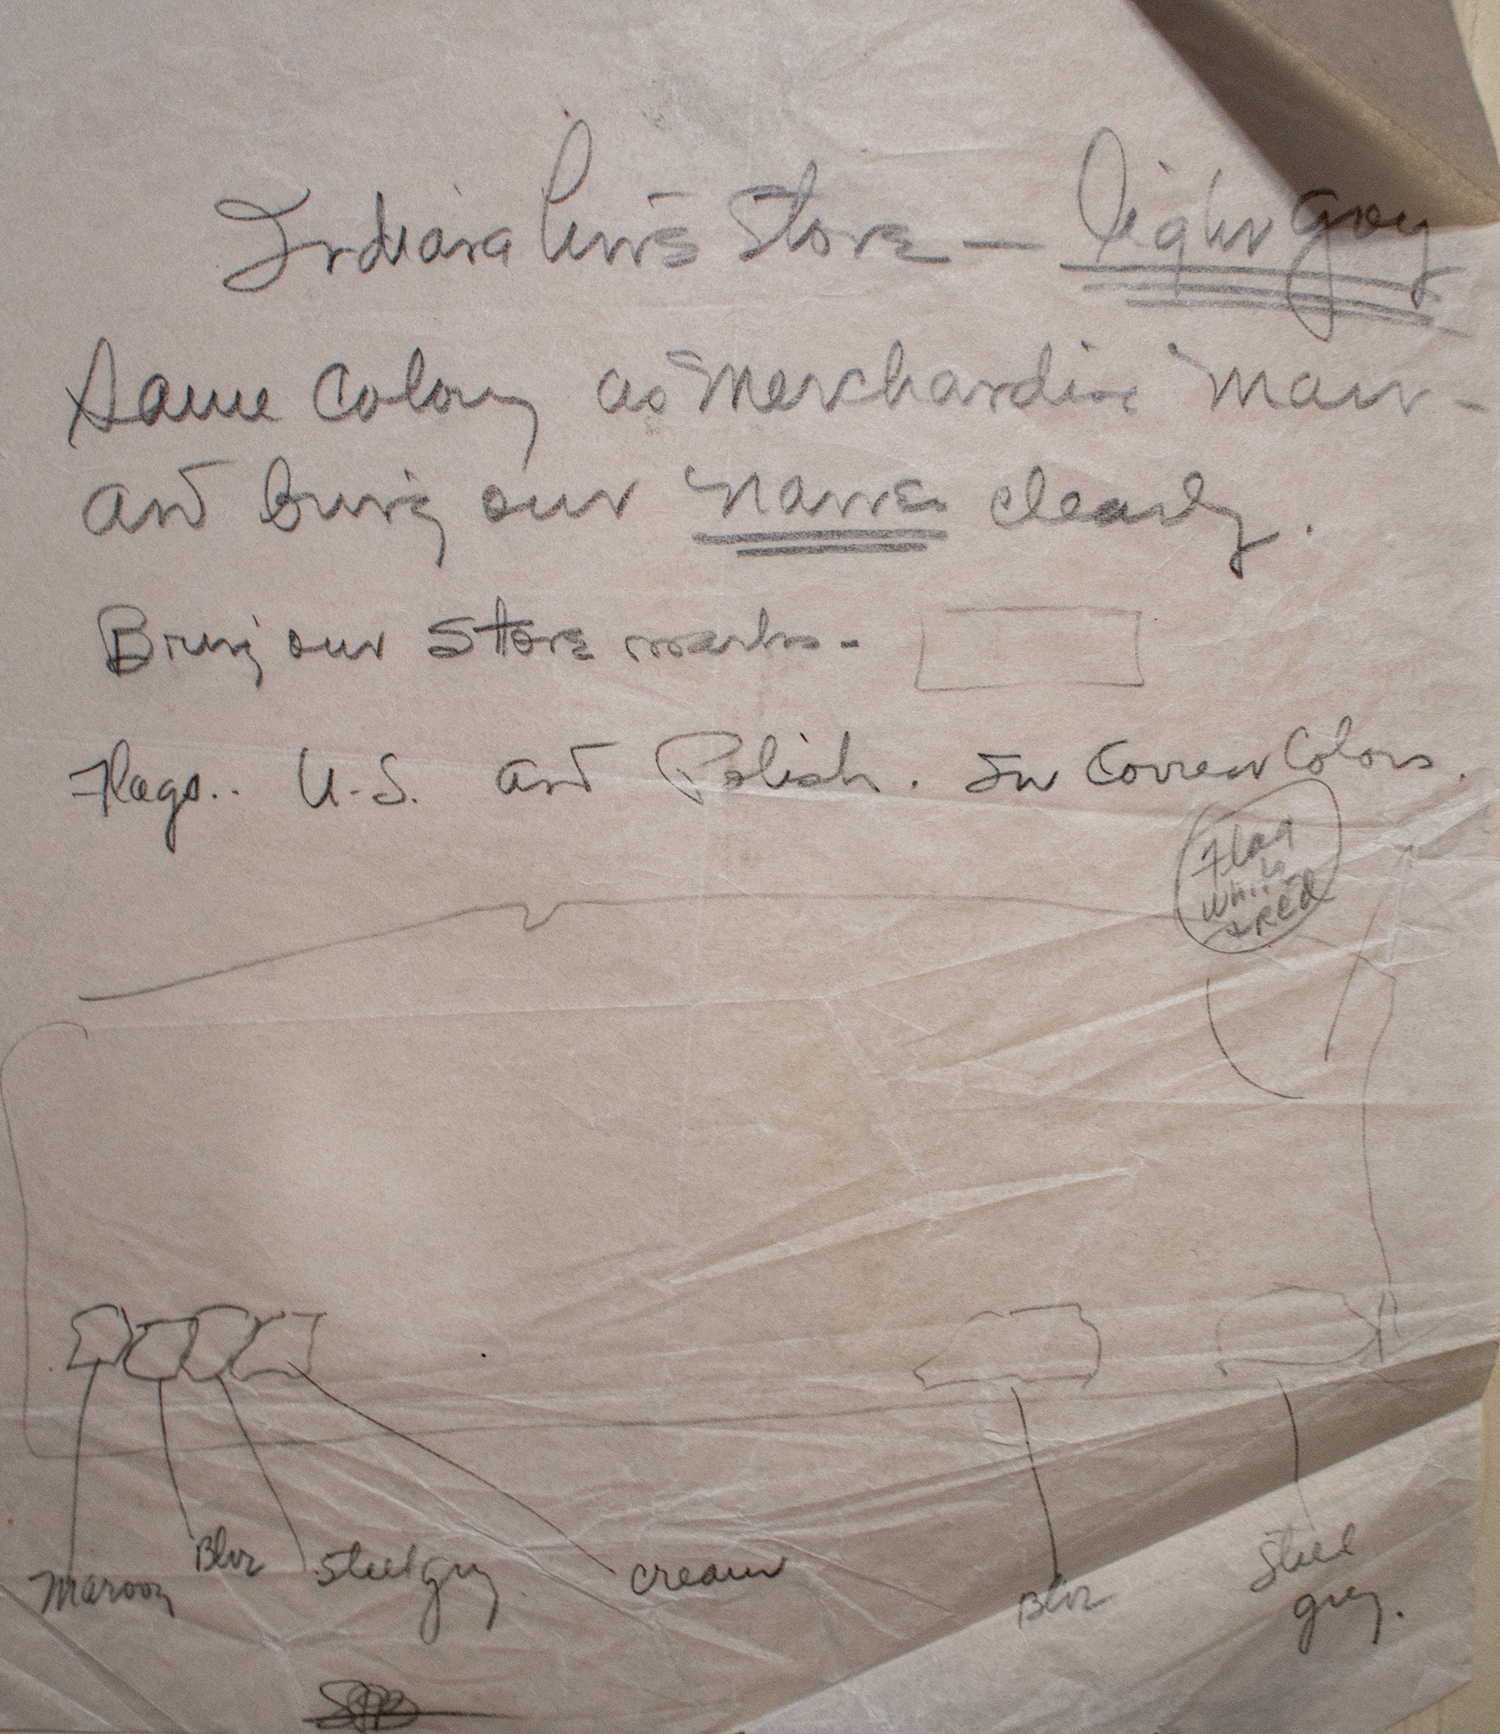 Indiana Store — light grey
Same Color as Merchandise Mart -
and bring our name clearly.
Bring our store marks -
Flags.. U.S. and Polish. In Correct Colors.
Flag
is
white
& RED
Maroon
Blue
Steel grey
cream
Blue
Steel
grey.